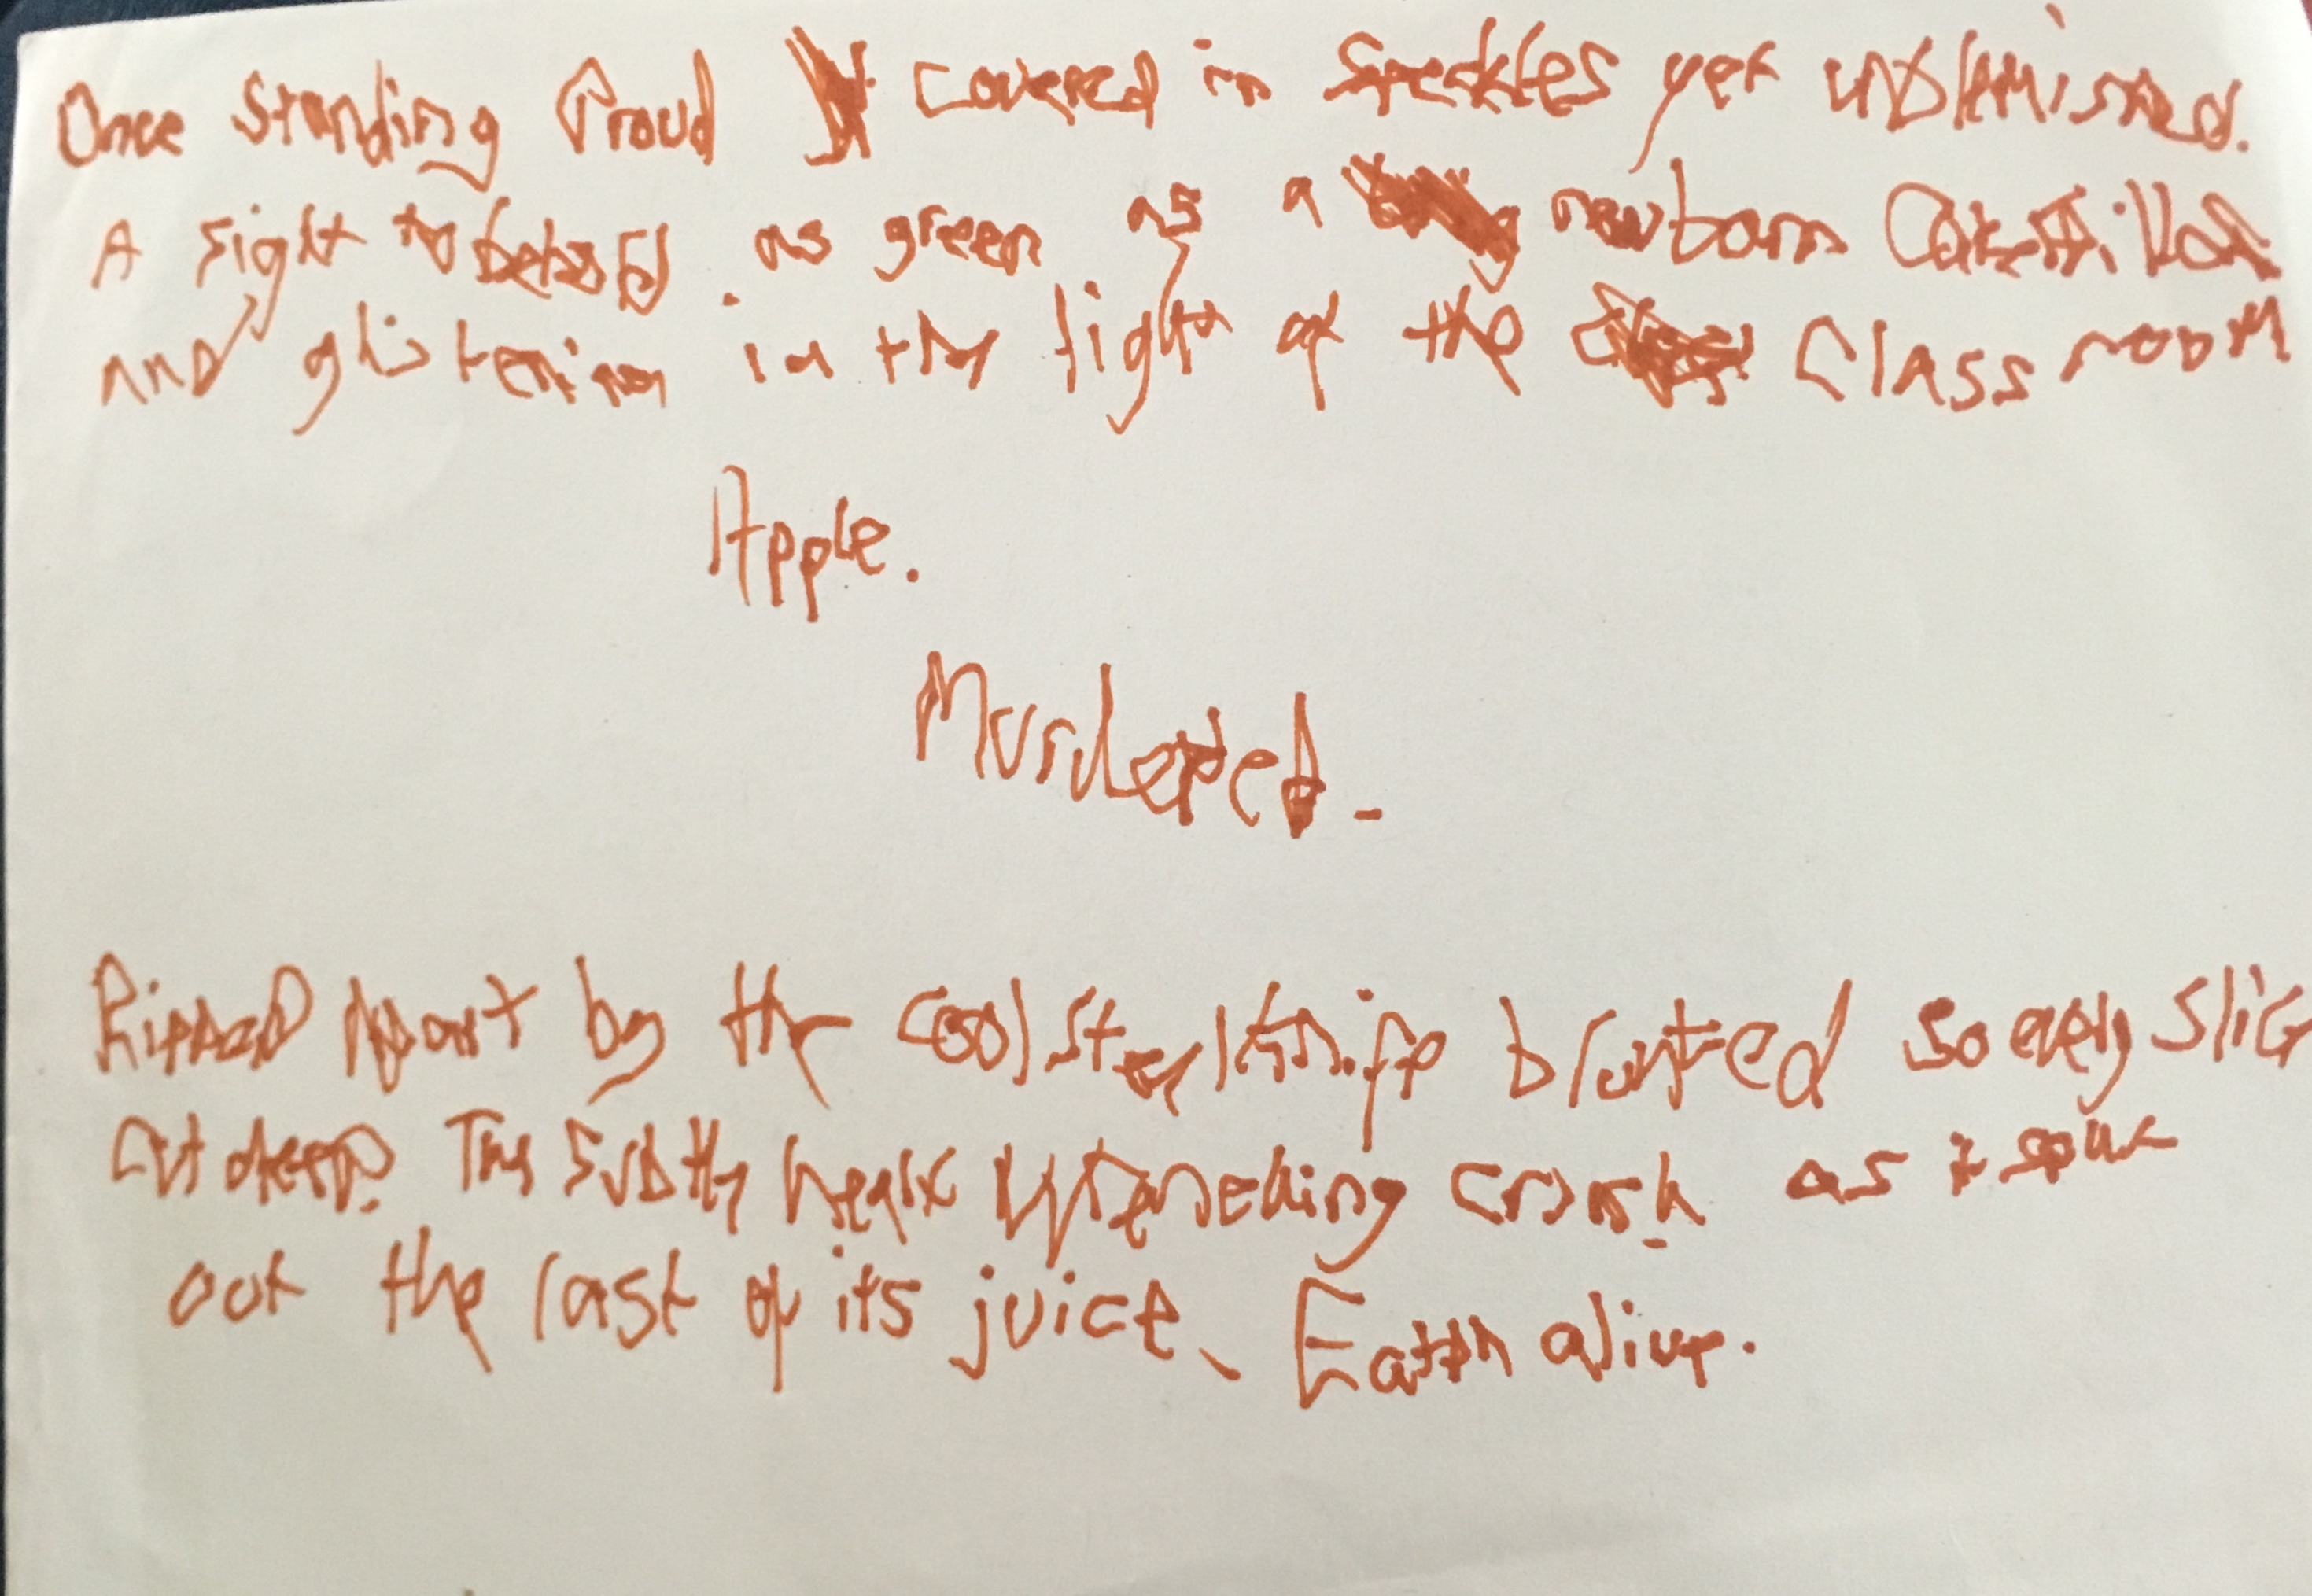 Once standing Proud covered in speckles yet unblemished.
A sight to behold. as green as a newborn Caterpillar
and glistening in the light of the classroom
Apple.
Murdered.
Ripped Apart by the cool steel knife blunted so every slice
cut deep. The subtly heart wrenching crunch as it spat
out the last of its juice. Eaten alive.